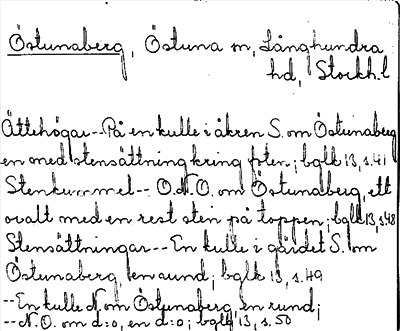 Östunaberg, Östuna sn, Långhundra
hd, Stockh.l
Ättehögar--På en kulle i åkren S. om Östunaberg
en med stensättning kring foten; bglk 13, s.41
Stenkummel-- O.N.O. om Östunaberg, ett
ovalt med en rest sten på toppen; bglk 13, s.48
Stensättningar--En kulle i gärdet S. om
Östunaberg, en rund; bglk 13, s.49
--En kulle N. om Östunaberg, en rund;
--N.O. om d:o, en d:o; bglk 13, s.50